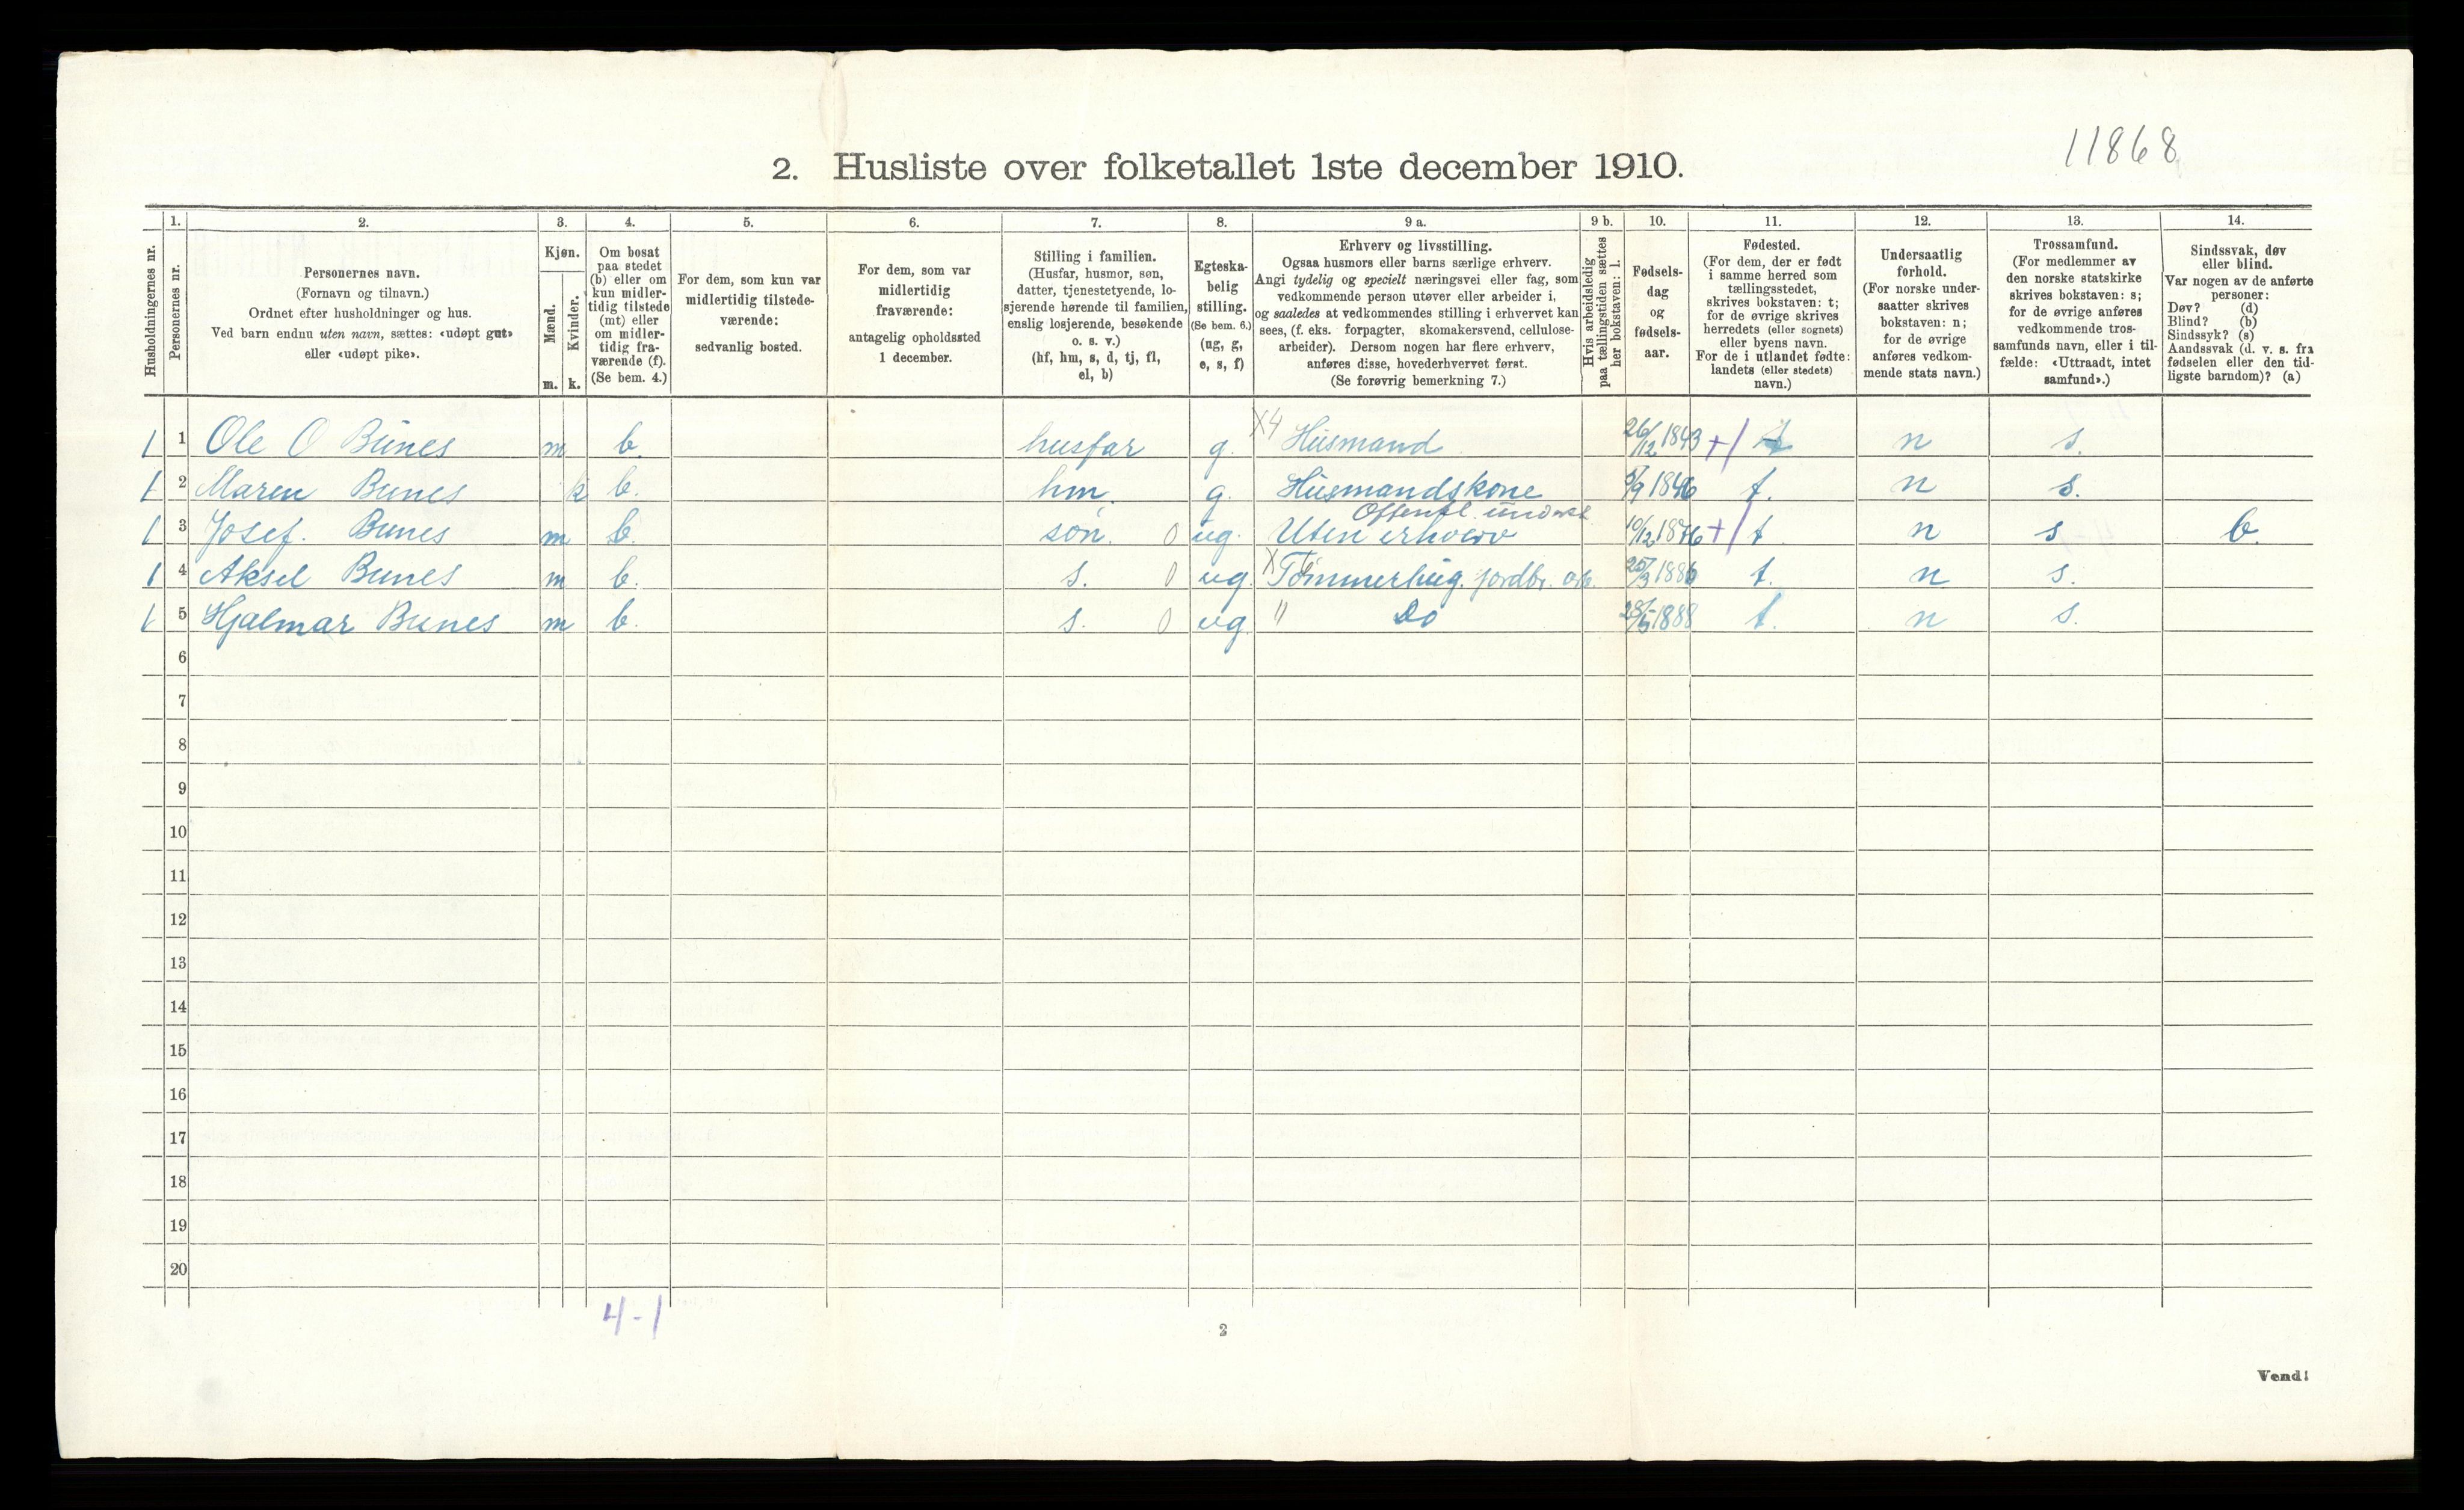 11868
2. Husliste over folketallet 1ste december 1910.
Husholdningernes nr.
1.
Personernes nr.
2.
Personernes navn.
(Fornavn og tilnavn.)
Ordnet efter husholdninger og hus.
Ved barn endnu uten navn, sættes: «udøpt gut»
eller «udøpt pike».
3.
Kjøn.
Mænd.
m.
Kvinder.
k.
4.
Om bosat
paa stedet
(b) eller om
kun midler-
tidig tilstede
(mt) eller
om midler-
tidig fra-
værende (f).
(Se bem. 4.)
5.
For dem, som kun var
midlertidig tilstede-
værende:
sedvanlig bosted.
6.
For dem, som var
midlertidig
fraværende:
antagelig opholdssted
1 december.
7.
Stilling i familien.
(Husfar, husmor, søn,
datter, tjenestetyende, lo-
sjerende hørende til familien,
enslig losjerende, besøkende
o. s. v.)
(hf, hm, s, d, tj, fl,
el, b)
8.
Egteska-
belig
stilling.
(Se bem. 6.)
(ug, g,
e, s, f)
9 a.
Erhverv og livsstilling.
Ogsaa husmors eller barns særlige erhverv.
Angi tydelig og specielt næringsvei eller fag, som
vedkommende person utøver eller arbeider i,
og saaledes at vedkommendes stilling i erhvervet kan
sees, (f. eks. forpagter, skomakersvend, cellulose-
arbeider). Dersom nogen har flere erhverv,
anføres disse, hovederhvervet først.
(Se forøvrig bemerkning 7.)
9 b.
Hvis arbeidsledig
paa tællingstiden sættes
her bokstaven: l.
10.
Fødsels-
dag
og
fødsels-
aar.
11.
Fødested.
(For dem, der er født
i samme herred som
tællingsstedet,
skrives bokstaven: t;
for de øvrige skrives
herredets (eller sognets)
eller byens navn.
For de i utlandet fødte:
landets (eller stedets)
navn.)
12.
Undersaatlig
forhold.
(For norske under-
saatter skrives
bokstaven: n;
for de øvrige
anføres vedkom-
mende stats navn.)
13.
Trossamfund.
(For medlemmer av
den norske statskirke
skrives bokstaven: s;
for de øvrige anføres
vedkommende tros-
samfunds navn, eller i til-
fælde: «Uttraadt, intet
samfund».)
14.
Sindssvak, døv
eller blind.
Var nogen av de anførte
personer:
Døv? (d)
Blind? (b)
Sindssyk? (s)
Aandssvak (d. v. s. fra
fødselen eller den tid-
ligste barndom)? (a)
1 1 Ole O Bunes m b. husfar g. X4 Husmand 26/12 1843 +/ t n s.
1 2 Maren Bunes k b. hm. g. Husmandskone 1846 t. n s.
Offentl. underst.
1 3 Josef. Bunes m b. søn. 0 ug. Uten erhverv 10/12 1876 +/ t n s b.
1 4 Aksel Bunes m b. s. 0 ug. X Tømmerhug. jordbr. arb. 25/3 1886 t. n s.
1 5 Hjalmar Bunes m b. s. 0 ug. " Do 1888 t. n s.
6
7
8
9
10
11
12
13
14
15
16
17
18
19
20
4-1
2
Vend!